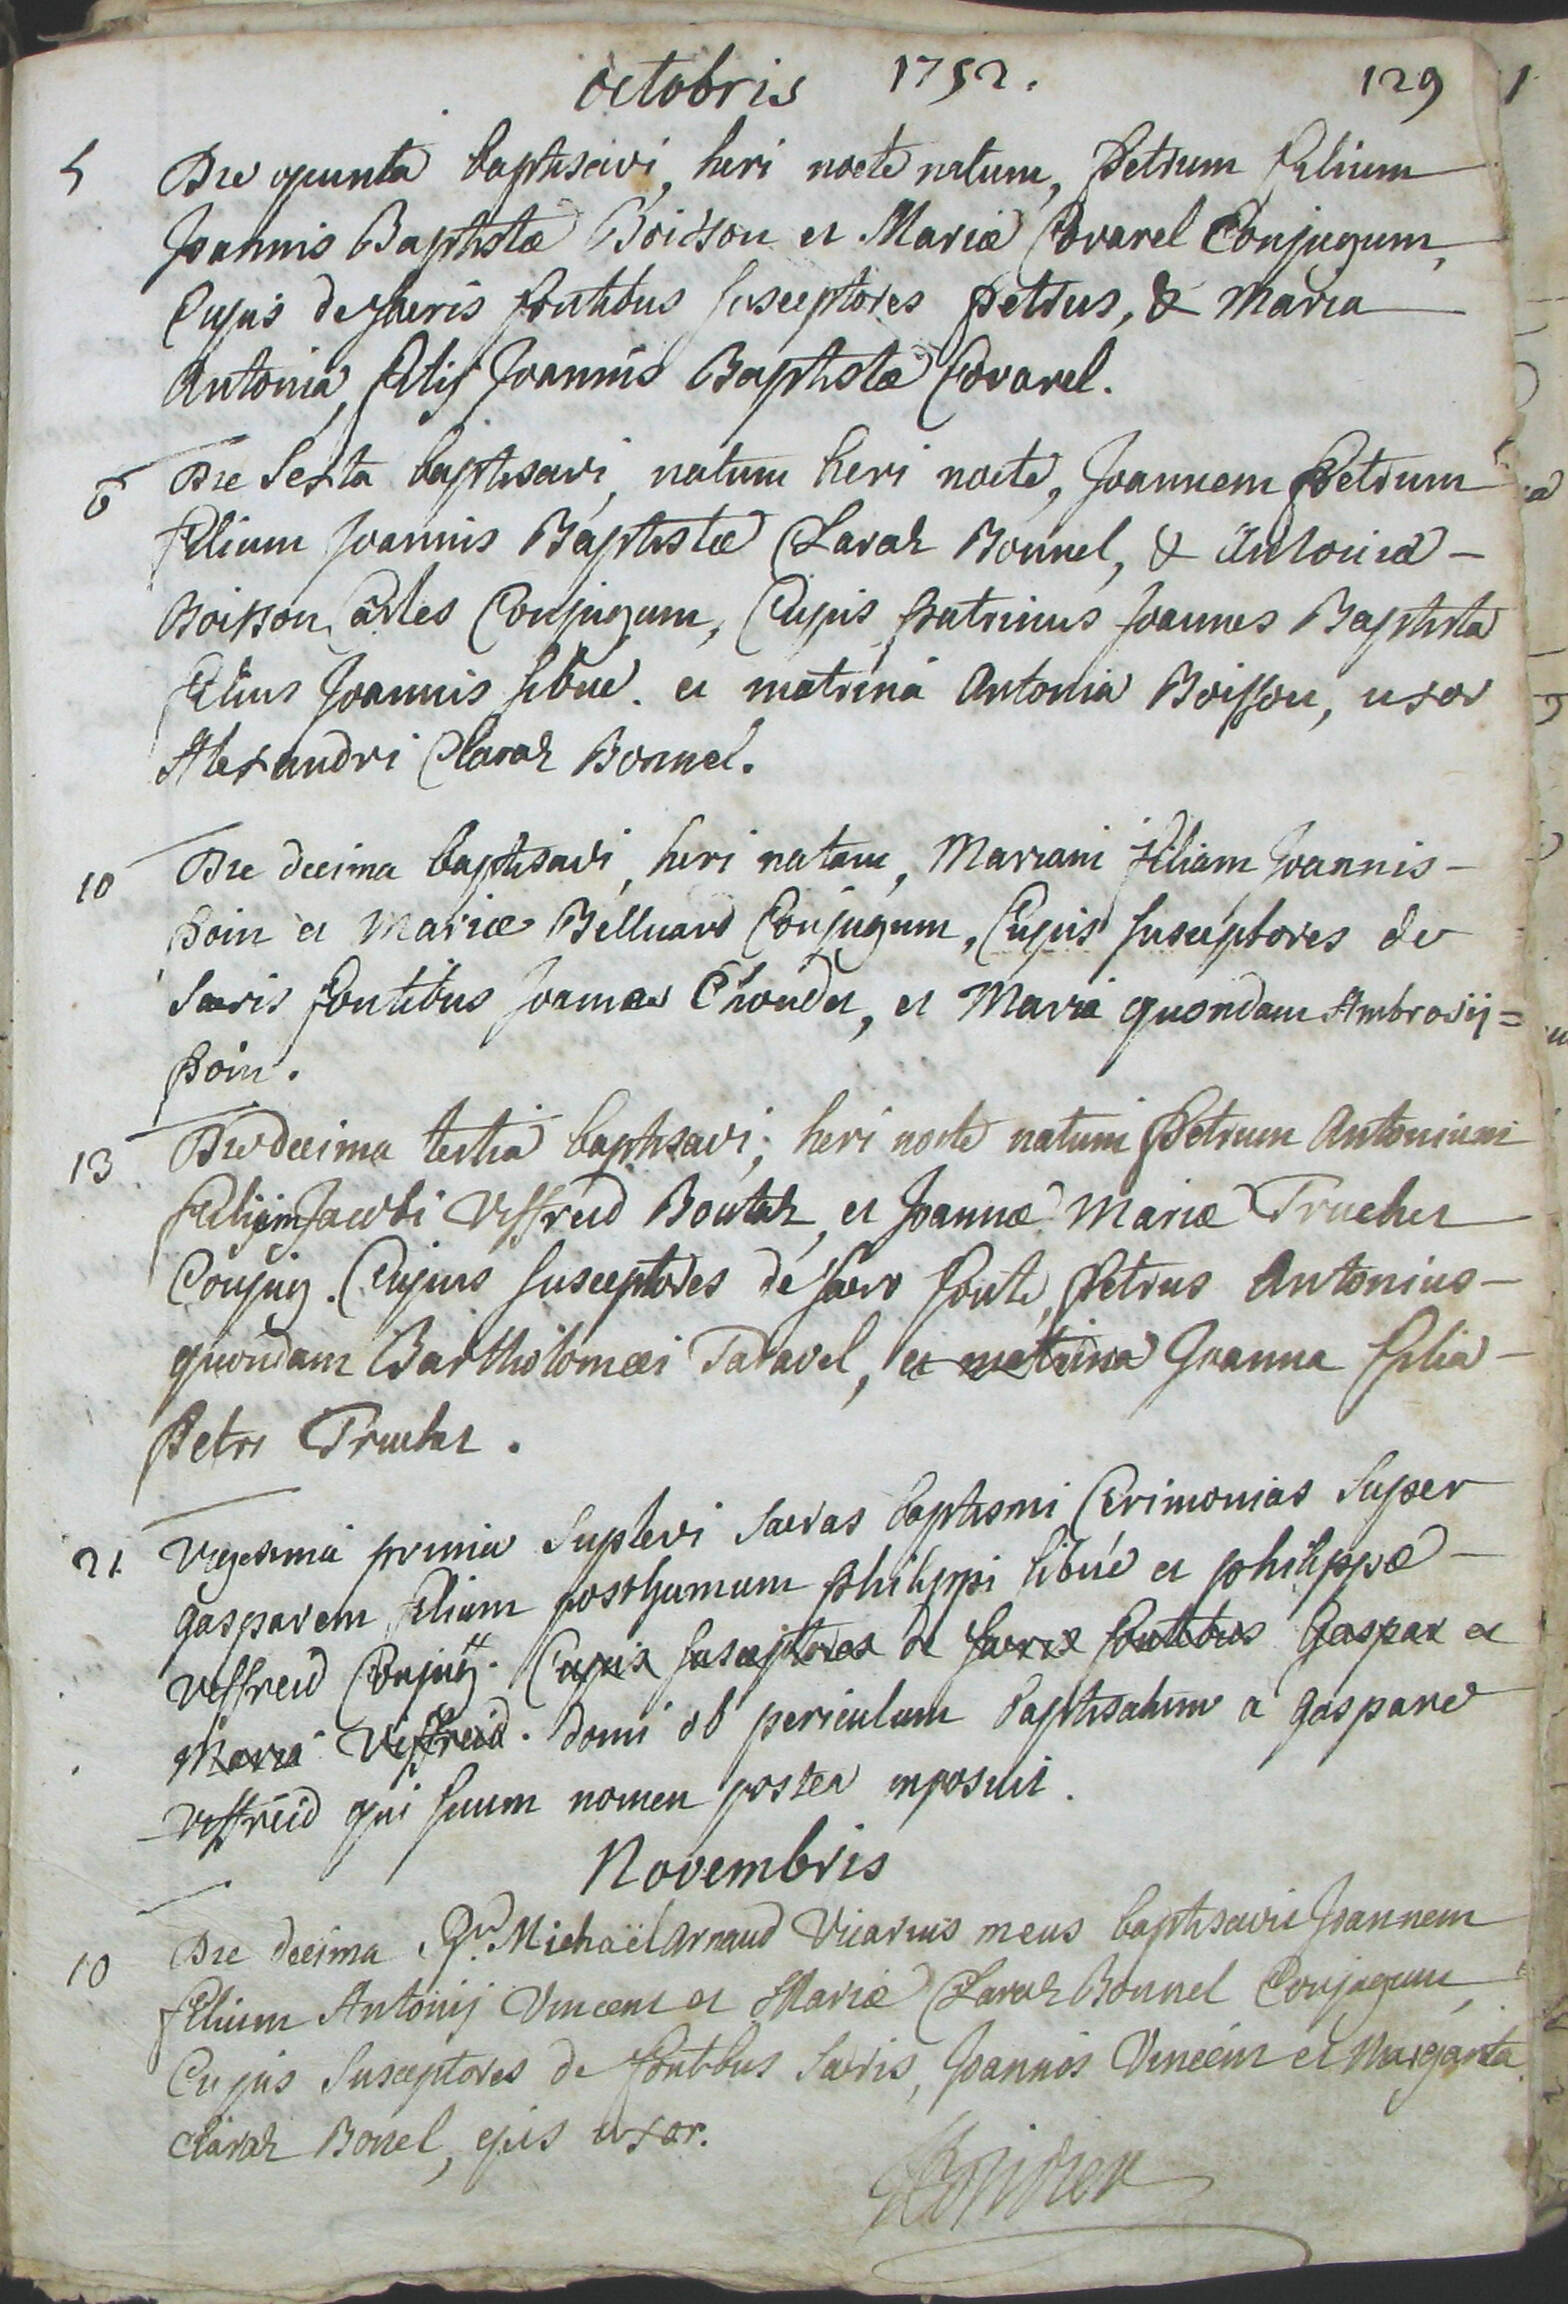 octobris 1752. 129
5 Die quinta baptisavi, heri nocte natum, Petrum filium
Joannis Baptistæ Boisson et Mariæ Covarel Conjugum,
Cujus de sacris fontibus susceptores Petrus, & Maria
Antonia, filij Joannis Baptistæ Covarel.
6 Die Sexta baptisavi, natum heri nocte, Joannem Petrum
filium Joannis Baptistæ Claraz Bonnel, & Antoniæ -
Boisson Conjugum, Cujus patrinus Joannes Baptista
filius Joannis sibué. et matrina Antonia Boisson, uxor
Alexandri Claraz Bonnel.
10 Die decima baptisavi, heri natam, Mariam filiam Joannis -
Poin et Mariæ Belluard Conjugum, Cujus susceptores de
Sacris fontibus Joannes, et Maria quondam Ambrosij =
Poin.
13 Die decima tertia baptisavi, heri nocte natum Petrum Antonium
filium Jacobi Viffreid Boutaz, et Joannæ Mariæ Truchet
Conjug. Cujus susceptores de sacro fonte, Petrus Antonius -
quondam Bartholomæi Taravel, et matrina Joanna filia -
Petri Truchet.
21. Vigesima prima Suplevi Sacras baptismi Cerimonias Super
gasparem filium posthumum philippi sibué et philippæ -
Viffreid Conjug. Cujus susceptores de sacris fontibus Gaspar et
Maria Viffreid. domi ob periculum baptisatum a gaspare
Viffreid qui suum nomen postea imposuit.
Novembris
10 Die decima Rr. Michaël Arnaud Vicarius meus baptisavit Joannem
filium Antonij Vincent et Mariæ Claraz Bonnel Conjugum,
Cujus Susceptores de fontibus Sacris, Joannes Vincent et Margarita
Claraz Bonel, ejus uxor.